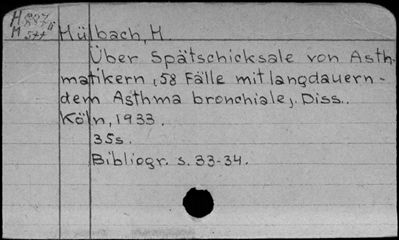 Hülbach, H.
Über Spätschicksale von Asth-
matikern (58 Fälle mit langdauern-
dem Asthma bronchiale). Diss.
Köln, 1933.
35s.
Bibliogr. s. 33-34.